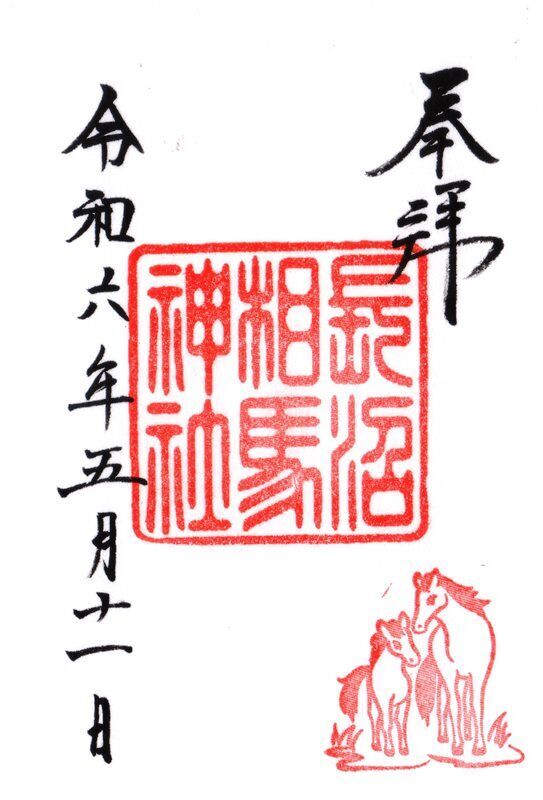 奉拝
長沼
相馬
神社
令和六年五月十一日